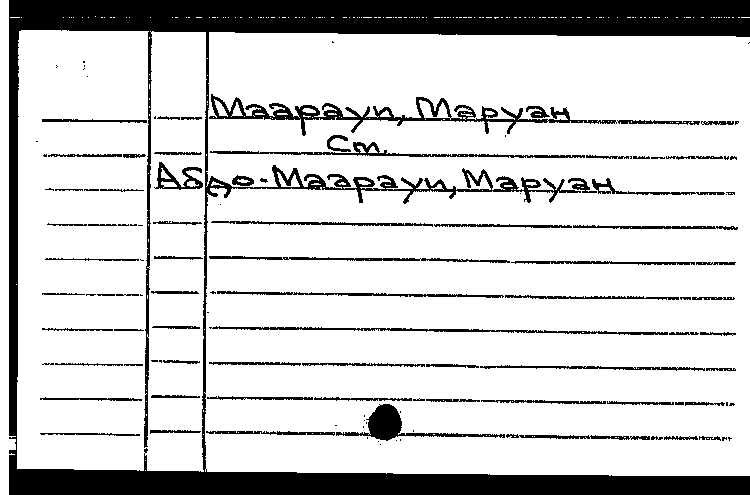 Маарауи, Маруан
Ст.
Абдо-Маарауи, Маруан